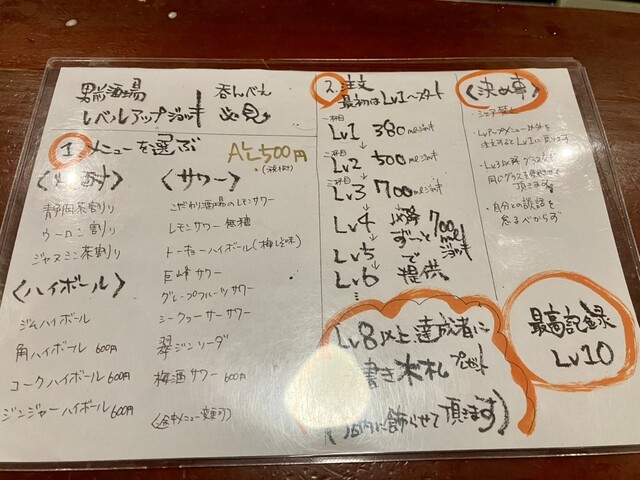 男前酒場
レベルアップジョッキ
呑んべえ
必見
1. メニューを選ぶ
ALL 500円
(税抜)
静岡茶割り
ウーロン割り
ジャスミン茶割り
<ハイボール>
ジムハイボール
角ハイボール 600円
コークハイボール 600円
ジンジャーハイボール 600円
<サワー>
こだわり酒場のレモンサワー
レモンサワー 無糖
トーキョーハイボール(梅しそ味)
巨峰サワー
グレープフルーツサワー
シークヮーサーサワー
翠ジンソーダ
梅酒サワー 600円
<途中メニュー変更可>
2. 注文
最初はLv1〜スタート
一杯目
Lv1 380mlジョッキ
二杯目
Lv2 500mlジョッキ
三杯目
Lv3 700mlジョッキ
Lv4 以降 700mlジョッキ
Lv5 ずーっと で
Lv6 提供
Lv8以上達成者に
書き米札プレゼント
(店内に飾らせて頂きます)
<決め事>
シェア禁止
・Lvアップメニュー以外を
注文するとLv1に戻ります
・Lv3以降グラスを
同じグラスを使わせて
頂きます
・自分との談話を
怠るべからず
最高記録
Lv10